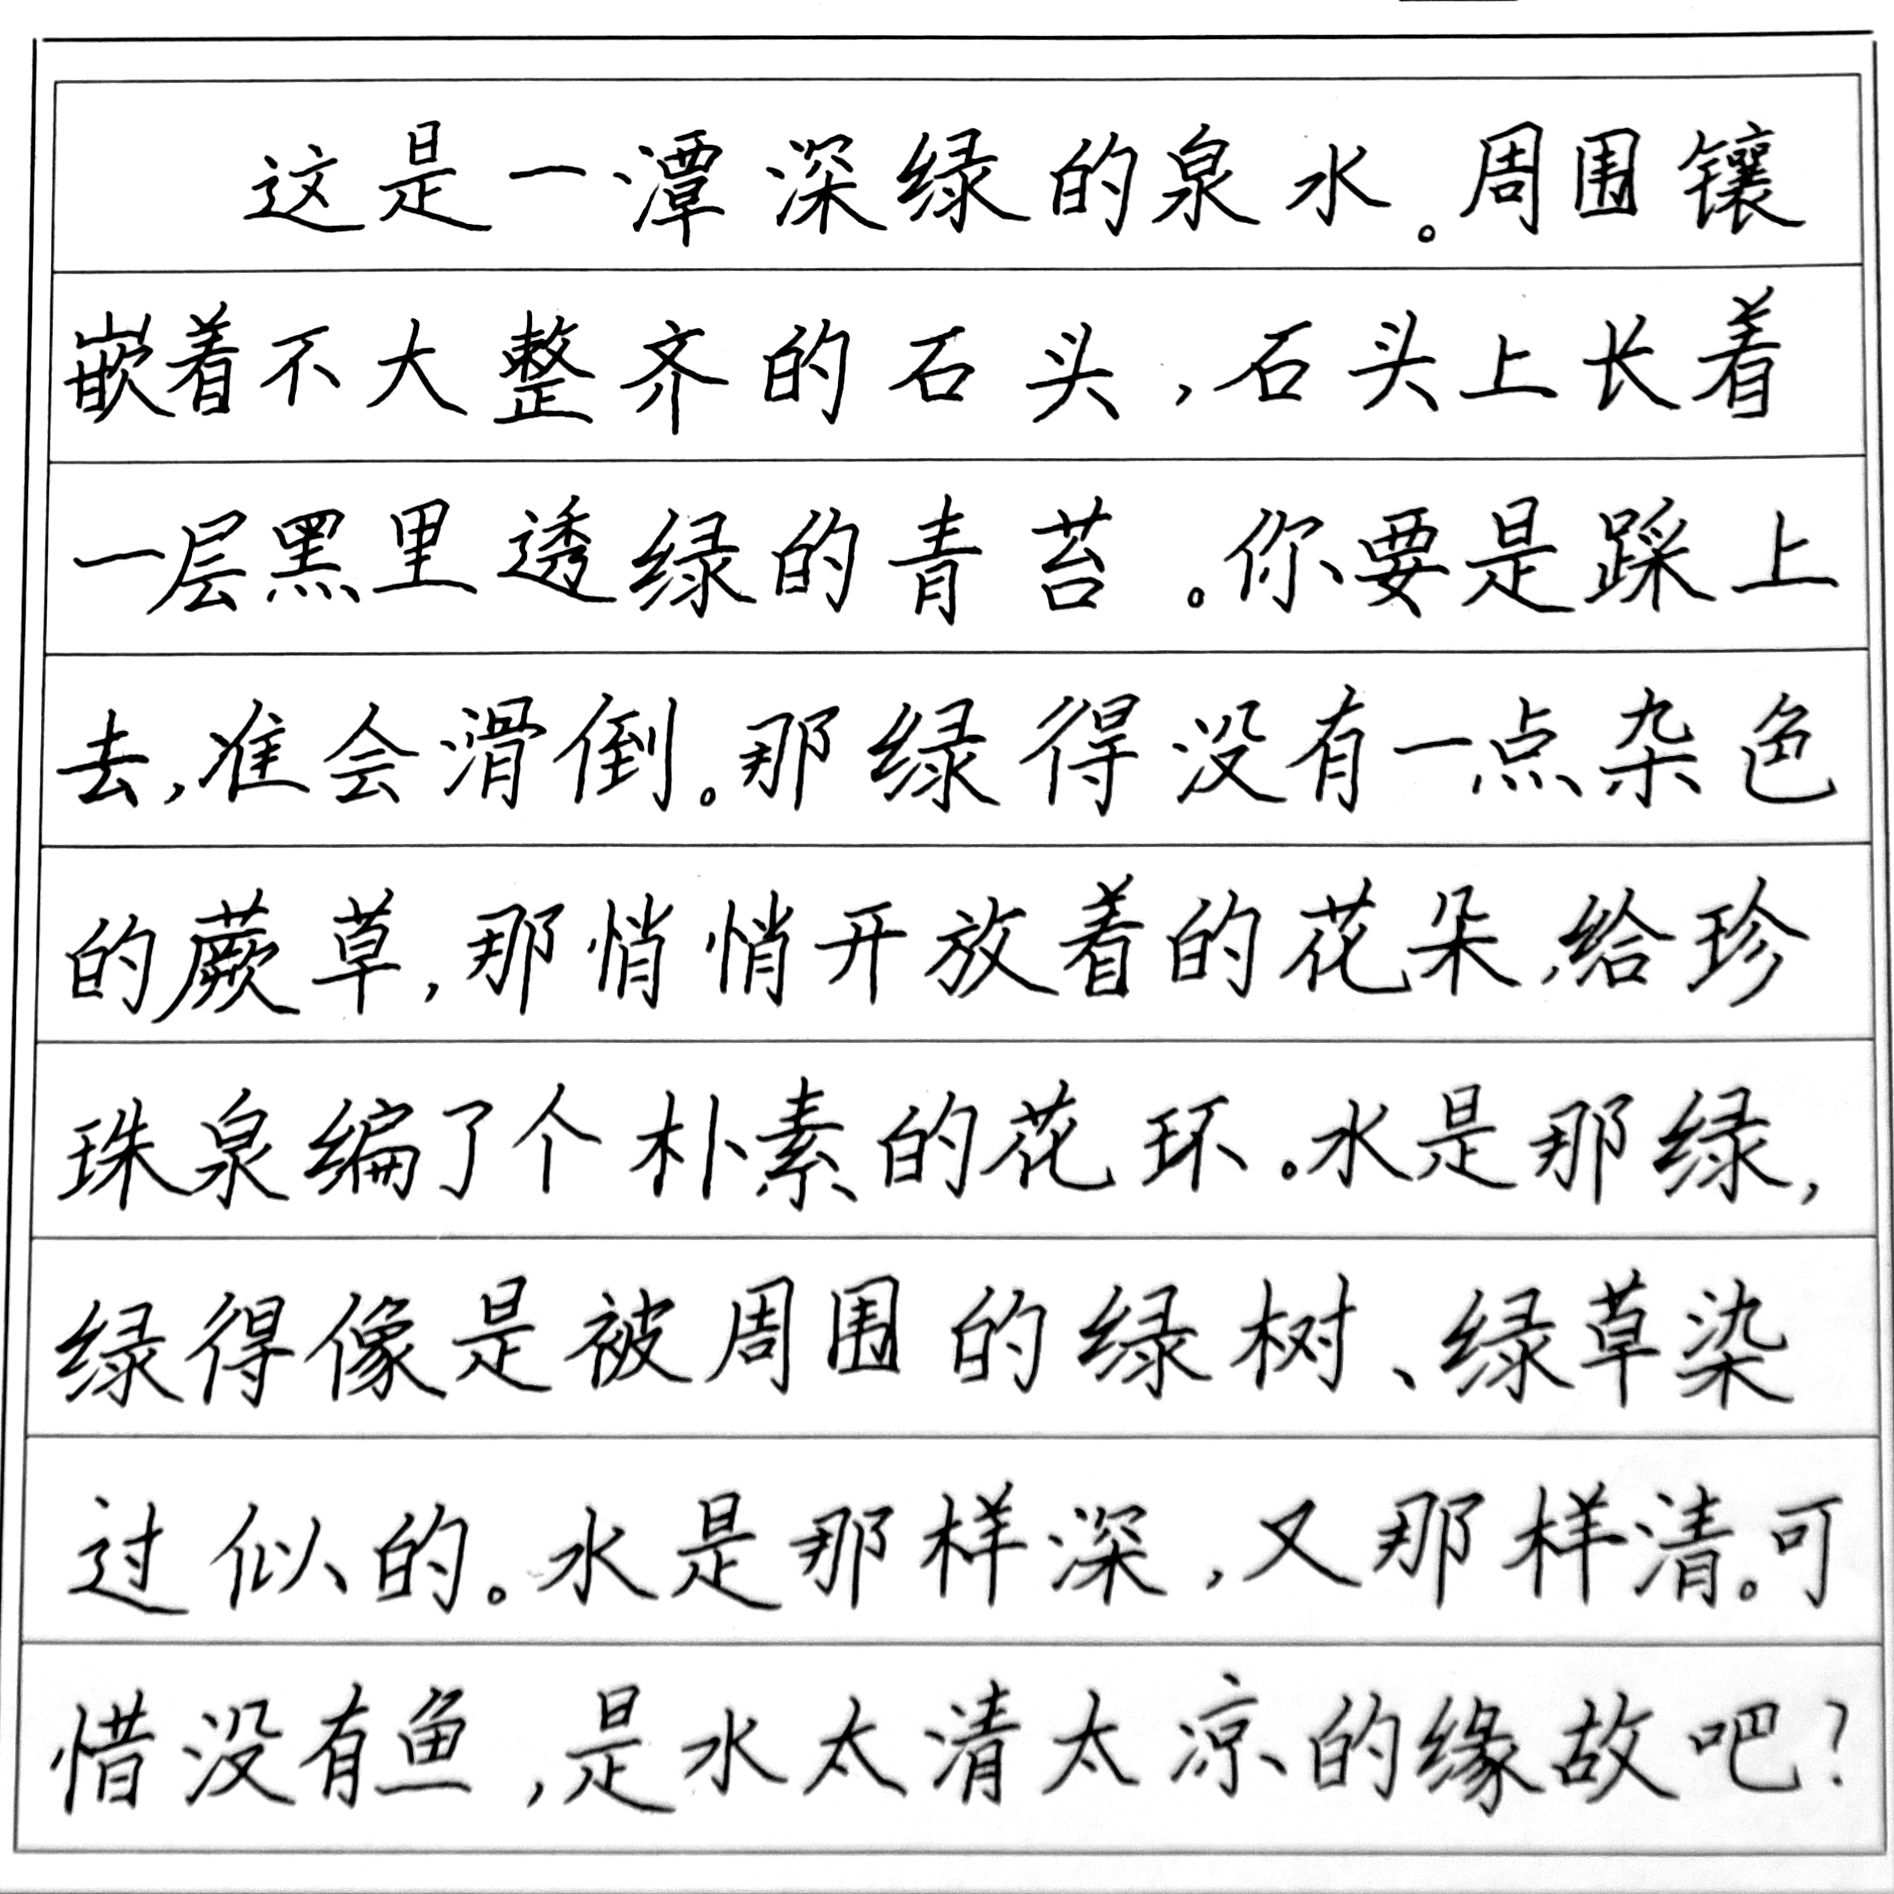 这是一潭深绿的泉水。周围镶
嵌着不大整齐的石头,石头上长着
一层黑里透绿的青苔。你要是踩上
去,准会滑倒。那绿得没有一点杂色
的蕨草,那悄悄开放着的花朵,给珍
珠泉编了个朴素的花环。水是那绿,
绿得像是被周围的绿树、绿草染
过似的。水是那样深,又那样清。可
惜没有鱼,是水太清太凉的缘故吧?